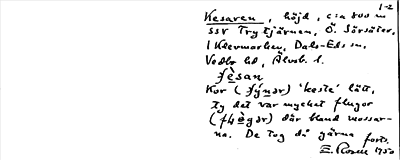 1-2
Kesaren, höjd, c:a 800 m
SSV Trytjärnen, Ö. Sörsäter,
i Klevmarken, Dals-Eds sn,
Vedbo hd, Älvsb. l.
fèsan
Kor (fýnər) 'keste' lätt,
ty det var mycket flugor
(flègər) där bland mossar-
na. De tog då gärna forts.
E. Rosén 1950